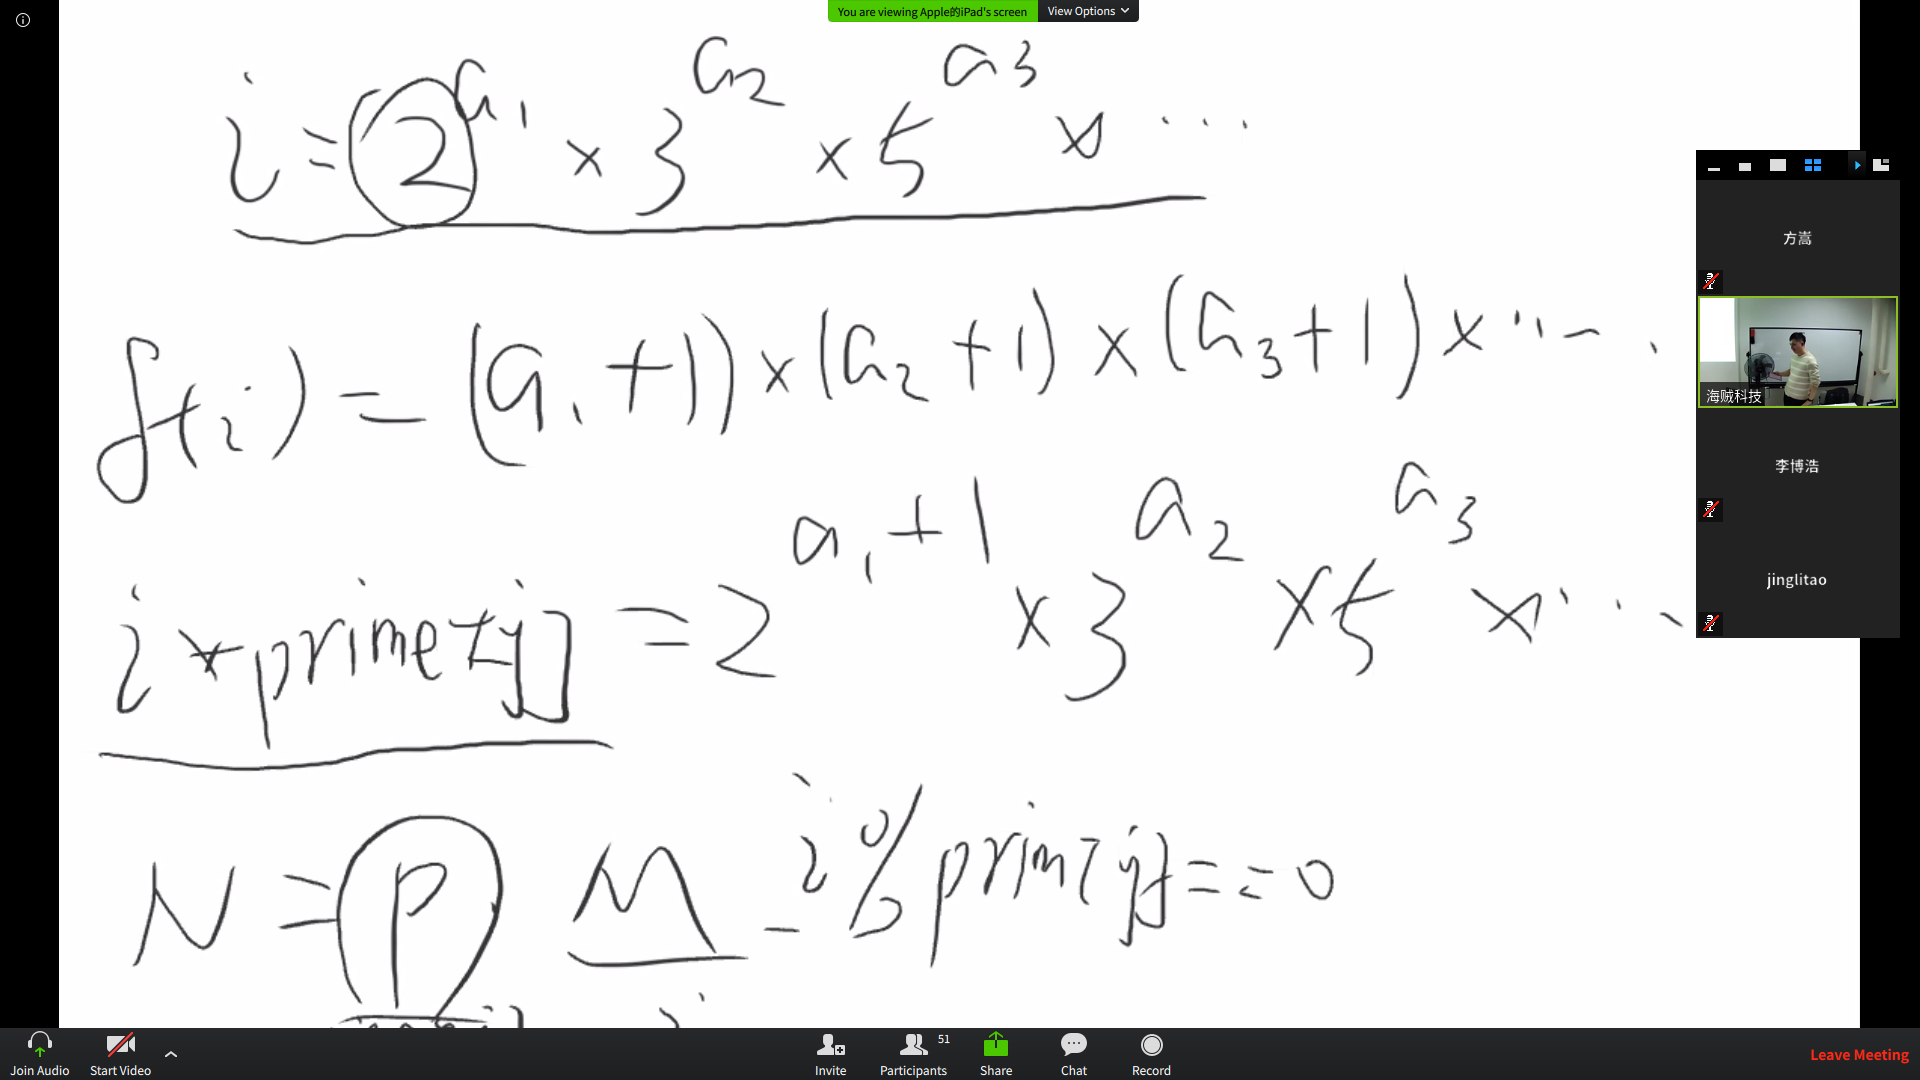 You are viewing Apple的iPad's screen View Options
i = 2^a1 × 3^a2 × 5^a3 × ....
f(i) = (a1+1) × (a2+1) × (a3+1) × ....
i*prime[j] = 2^a1+1 × 3^a2 × 5^a3 × ...
N = P M - i%prim[j]==0
方嵩
海贼科技
李博浩
jinglitao
Join Audio Start Video Invite Participants 51 Share Chat Record Leave Meeting